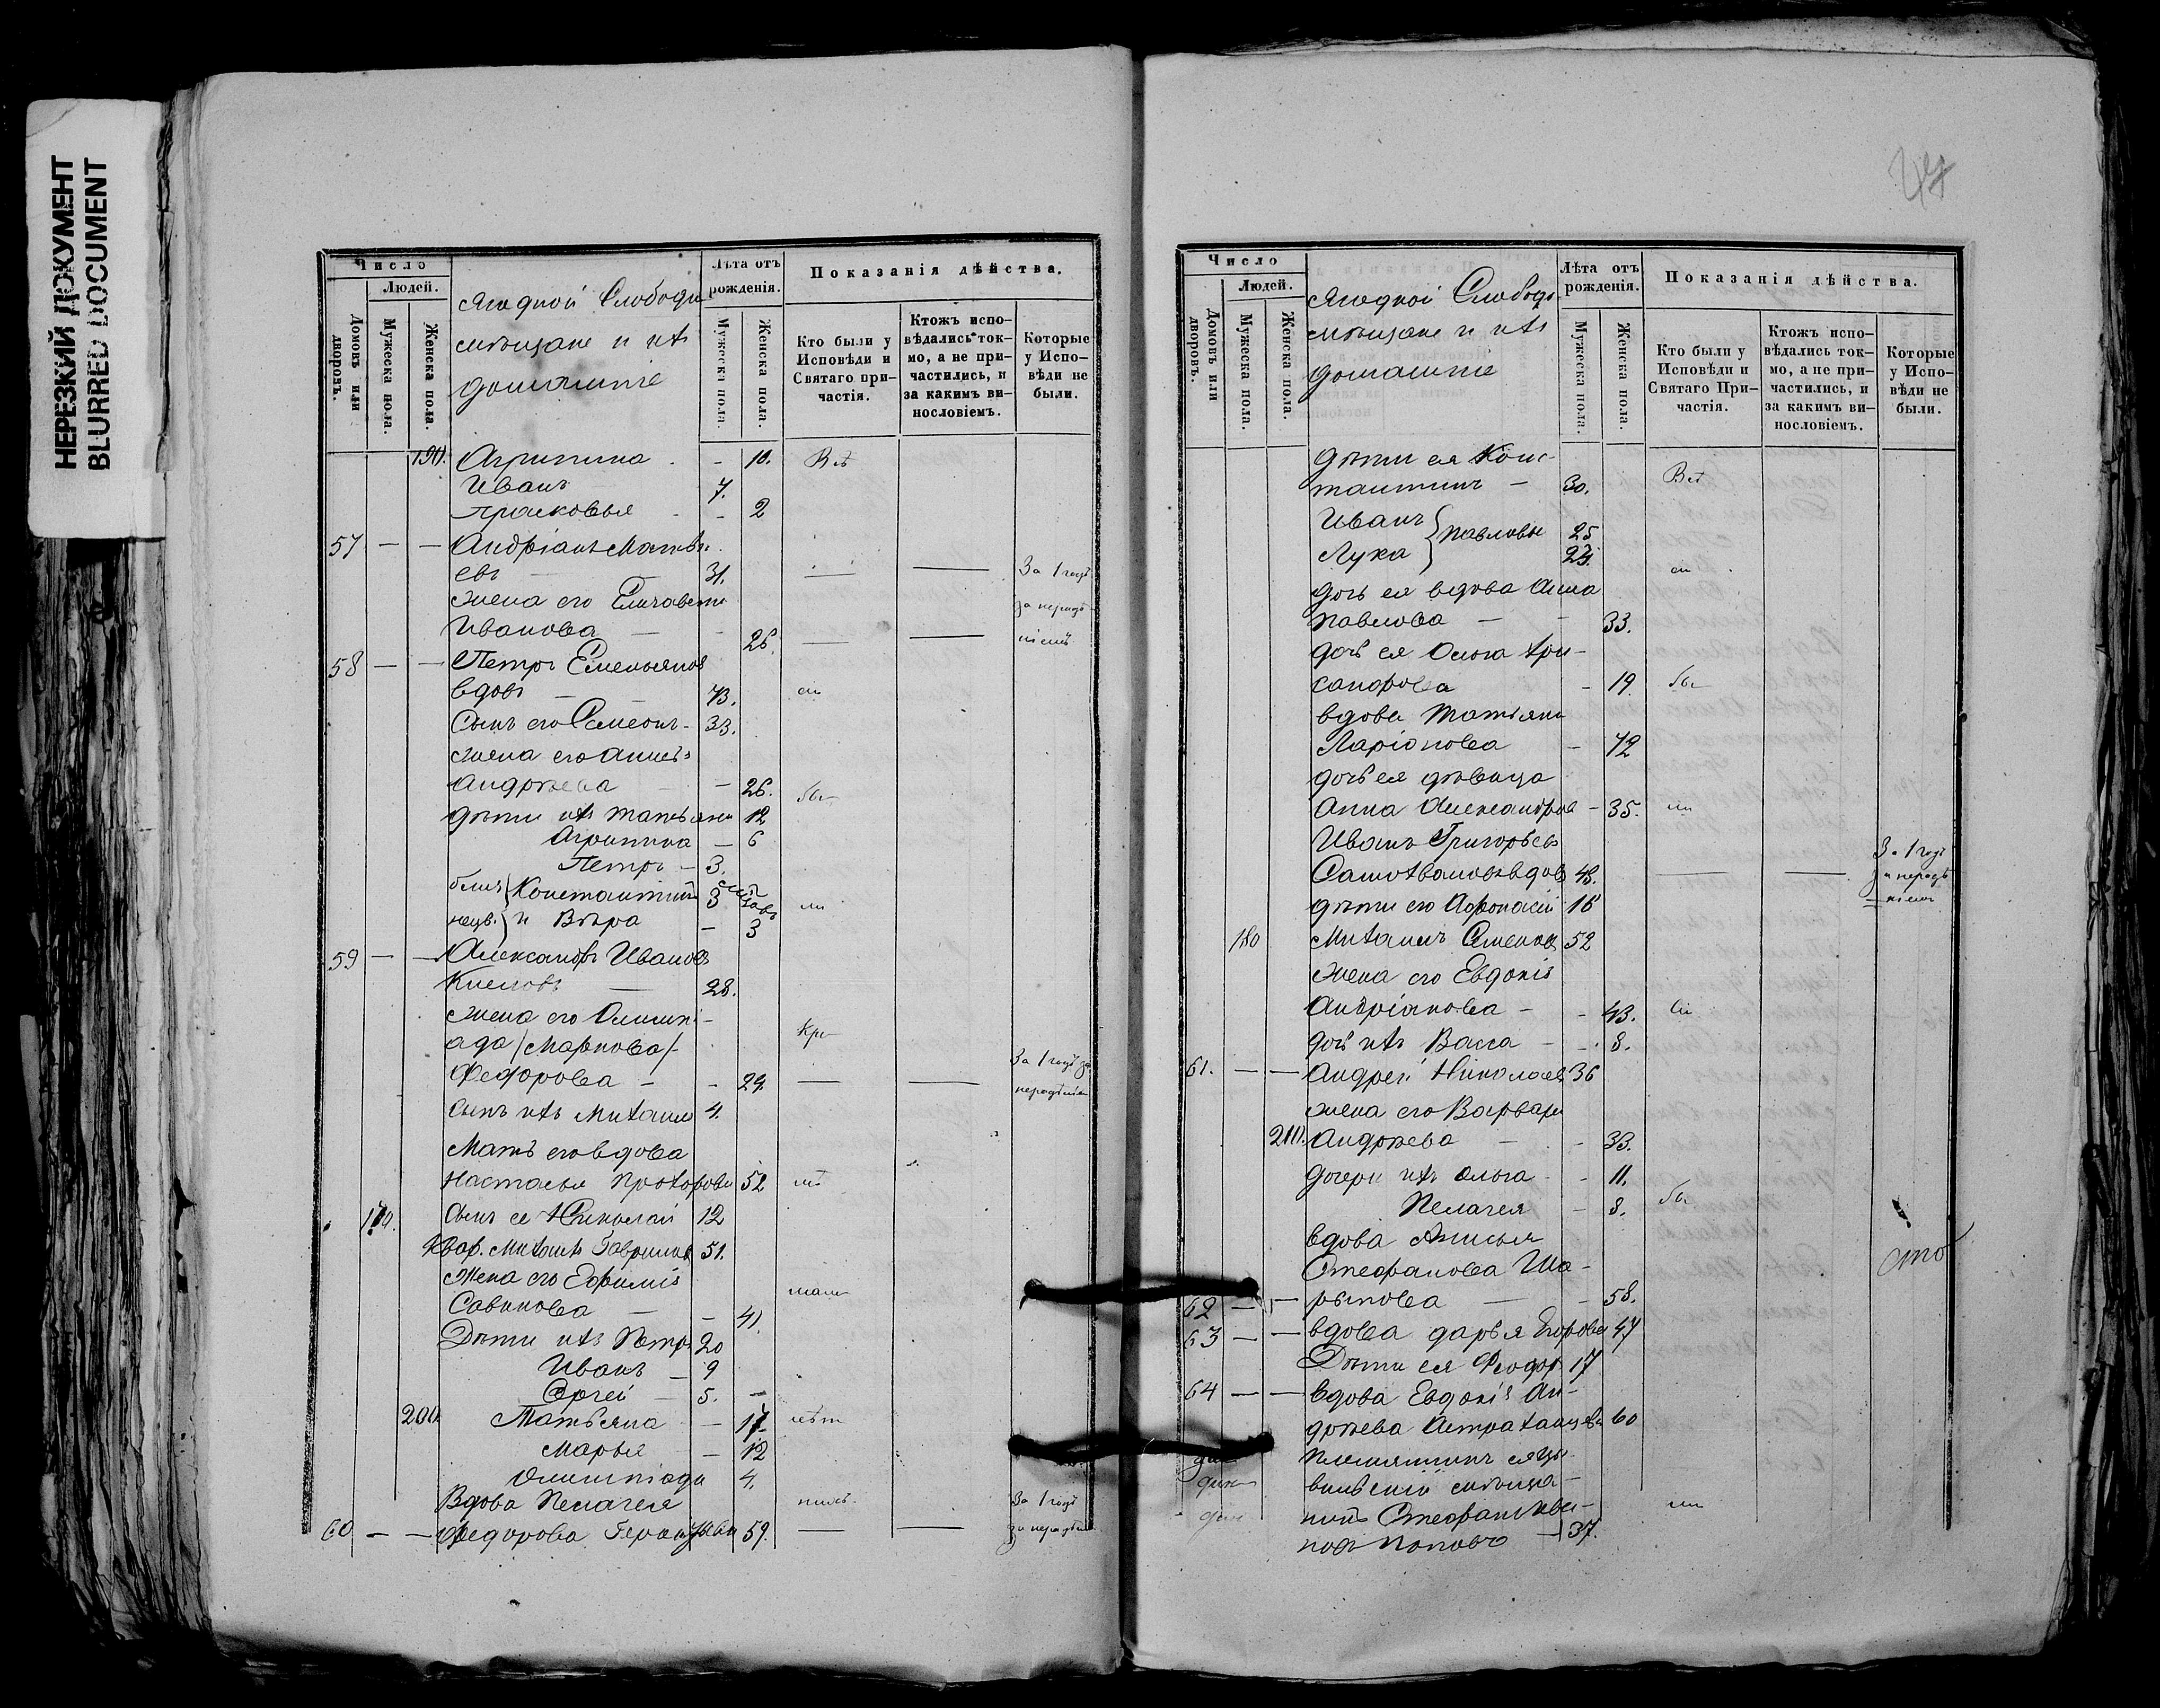 НЕРЕЗКИЙ ДОКУМЕНТ
BLURRED DOCUMENT
Число
Людей.
Домовъ или дворовъ.
Мужеска пола.
Женска пола.
Ягодной Слободы
мѣщане и ихъ
домашніе
Лѣта отъ рожденія.
Мужеска пола.
Женска пола.
Показанія дѣйства.
Кто были у Исповѣди и Святаго причастія.
Ктожъ исповѣдались токмо, а не причастились, и за какимъ винословіемъ.
Которые у Исповѣди не были.
190. Агрипина - 10. Всѣ
Иванъ 7.
Прасковья - 2
57 — — Андріанъ Матвѣ-
евъ 31. — — За 1 годъ
жена его Елизавета за нерадѣ-
Иванова — 26. — — ніемъ
58 — — Петръ Емельяновъ
вдовъ 73.
Сынъ его Симеонъ - 33.
жена его Анна
Андрѣева — 26. бы-
дѣти ихъ Татьяна 12
Агрипина — 6
Петръ — 3.
близ- Константинъ 3
нецы и Вѣра — 3
59 — — Александръ Ивановъ
28.
жена его Олимпі-
ада /Маркова/ При
Федорова — 29 — — За 1 годъ за нерадѣніемъ
Сынъ ихъ Михаилъ 4.
Мать его вдова
Настасья Прохорова 52
Сынъ ея Николай 12
Квар. Михаилъ Гавриловъ 51.
Жена его Ефимія
Савинова — 41.
Дѣти ихъ Петръ 20
Иванъ — 9
Сергей — 5.
200. Татьяна — 17
Марья — 12
Олимпіада 4.
Вдова Пелагея За 1 годъ
60 — — Федорова 59. — — за нерадѣніемъ
47
Число
Людей.
Домовъ или дворовъ.
Мужеска пола.
Женска пола.
Ягодной Слободы
мѣщане и ихъ
домашніе
Лѣта отъ рожденія.
Мужеска пола.
Женска пола.
Показанія дѣйства.
Кто были у Исповѣди и Святаго Причастія.
Ктожъ исповѣдались токмо, а не причастились, и за какимъ винословіемъ.
Которые у Исповѣди не были.
Дѣти ея Конс-
тантинъ — 30. Всѣ
Иванъ Павловы 25
Лука
дочь ея вдова Анна
Павлова — 33.
дочь ея Ольга
- 19. бы-
вдова Татьяна
Ларіонова — 72
дочь ея дѣвица
Анна Александров - 35.
Иванъ Григорьевъ За 1 годъ
вдовъ 48. — — за нерадѣ-
дѣти его Афонасій 16 ніемъ
180 Михаилъ Семеновъ 52
жена его Евдокія
Андріанова — 43.
дочь ихъ Васса — 8.
61. — — Андрей Николаевъ 36
жена его Варвара
210. Андрѣева — 33.
дочери ихъ Ольга - 11.
Пелагея - 8. бы-
вдова Анисья
Стефанова Ша-
62 — — рыпова — 58.
63 — — вдова Дарья Егорова 47
Дѣти ея Феодоръ 17
64 — — Вдова Евдокія Ан-
дрѣева Астраханцева 60
Племянникъ ея Ци-
вильскій мѣща-
нинъ Стефанъ Ива-
новъ Поповъ — 37.